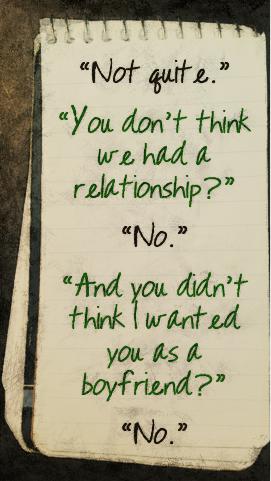 “Not quite.”
“You don't think
we had a
relationship?”
“No.”
“And you didn't
think I wanted
you as a
boyfriend?”
“No.”